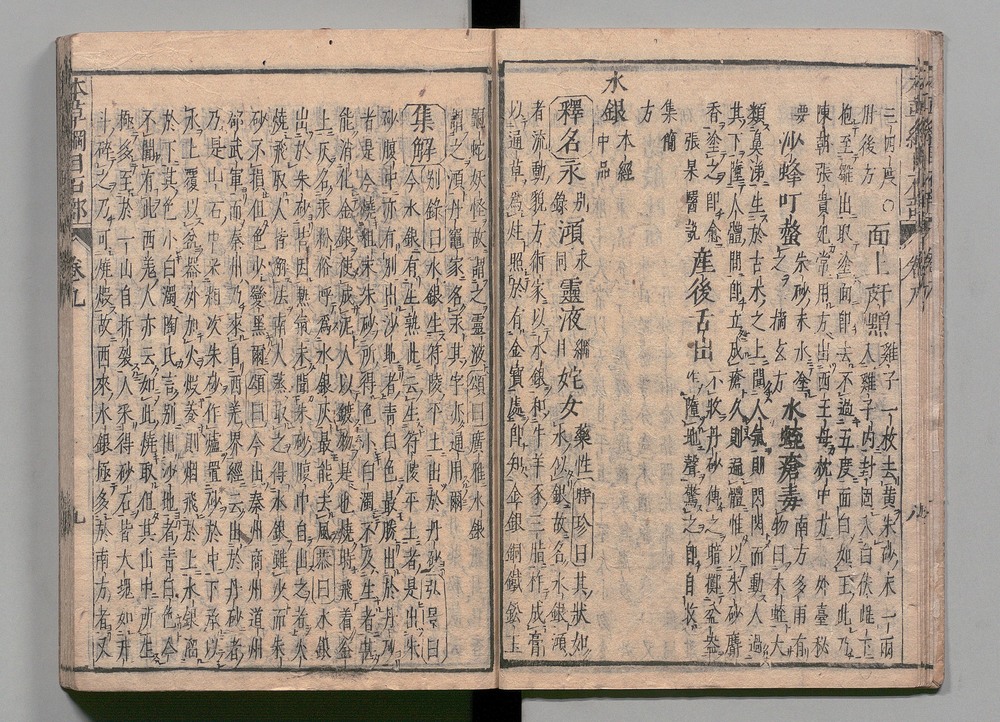 三四度○面上䵟䵳人雞子一枚去黄朱砂末一兩
肘後方
胞至雛出取塗面即去不過五度面白如玉此乃
陳朝張貴妃常用方出西王母枕中方外臺秘
要沙蜂叮螫朱砂末水塗之摘玄方水蛭瘡毒南方多雨有
物曰木蛭大
類鼻涕生於古木之上聞人氣則閃閃而動人過
其下墮人體間即立成瘡久則遍體惟以朱砂麝
香塗之即愈張杲醫說產後舌出不收丹砂傅之暗擲盆盎
作墮地聲驚之即自收
集簡
方
水銀本經中品
釋名汞別録澒同靈液綱目姹女藥性時珍曰其狀如
水似銀故名水銀澒
者流動貌方術家以水銀和牛羊豕三脂杵成膏
以通草為炷照於有金寶處即知金銀銅鐵鉛玉
龜蛇妖怪故謂之靈液頌曰廣雅水銀
謂之澒丹竈家名汞其字亦通用爾
集解別録曰水銀生符陵平土出於丹砂弘景曰
今水銀有生熟此云生符陵平土者是出朱
砂腹中亦有別出沙地者青白色最勝出於丹砂
者是今燒粗末朱砂所得色小白濁不及生者甚
能消化金銀使成泥人以鍍物是也燒時飛着釜
上灰名汞粉俗呼為水銀灰最能去風恭曰水銀
出於朱砂皆因熱氣未聞朱砂腹中自出之者火
燒飛取人皆解法南人蒸取之得水銀雖少而朱
砂不損但色少變黑爾頌曰今出秦州商州道州
邵武軍而秦州乃來自西羌界經云出於丹砂者
乃是山石中采粗次朱砂作爐置砂於中下承以
水上覆以盎器外加火煅養則烟飛於上水銀溜
於下其色小白濁陶氏言別出沙地者青白色今
不聞有此西羌人亦云如此燒取但其山中所生
極多至於一山自拆裂人采得砂石皆大塊如升
斗碎之乃可燒煅故西來水銀極多於南方者又
本草綱目石部
卷九
九